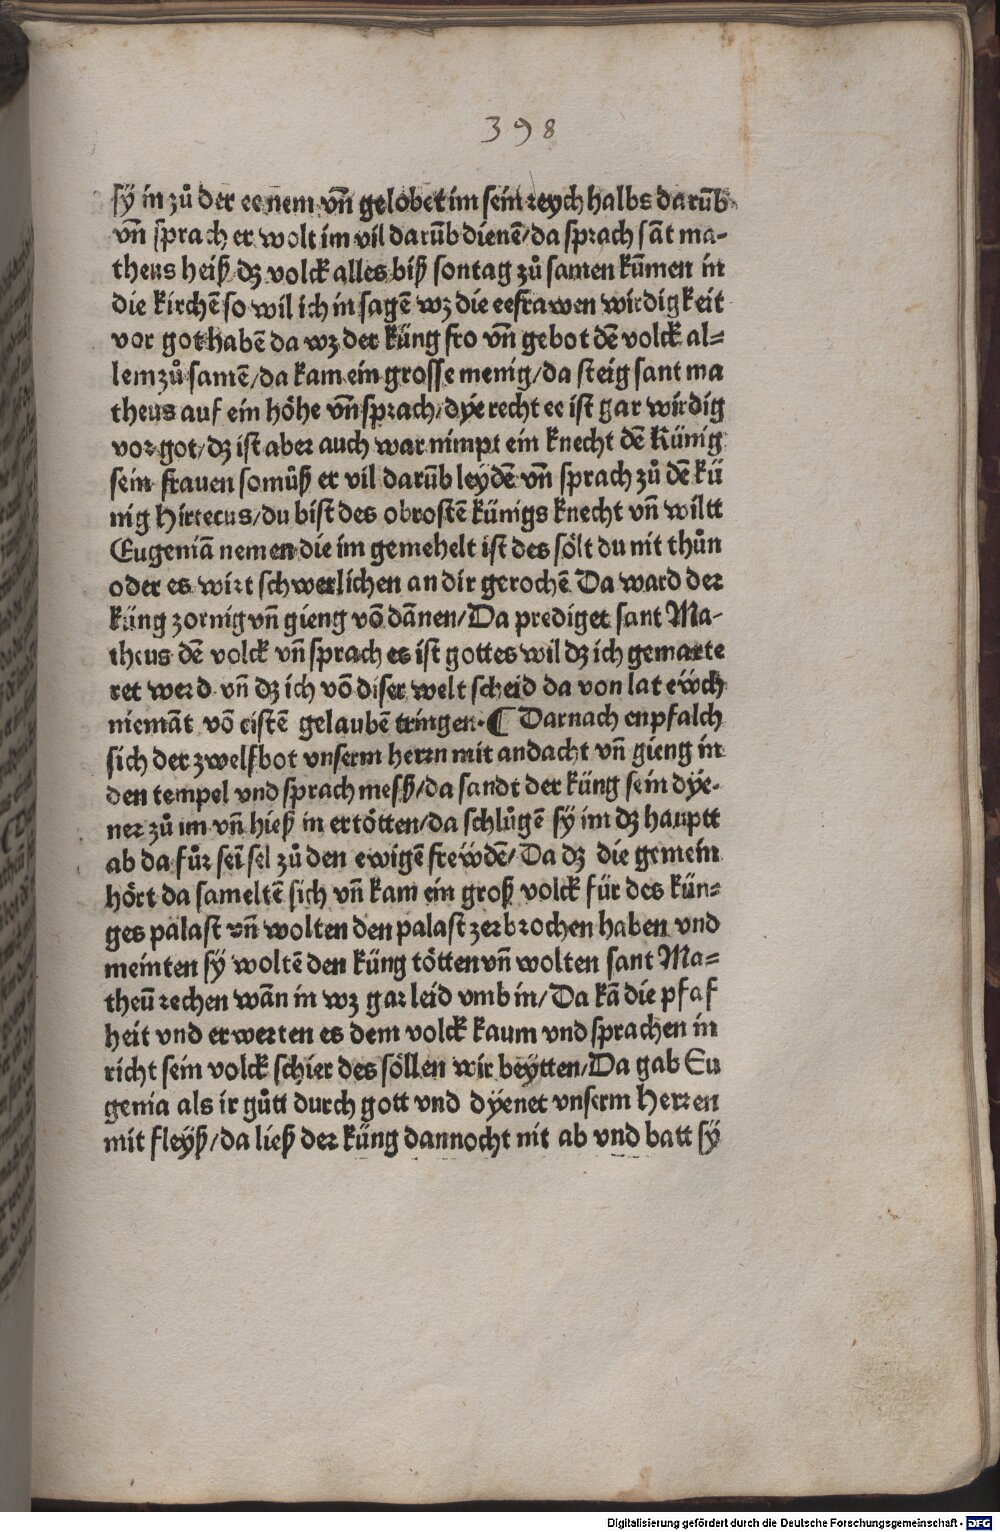 398
sÿ in zů der ee nem vñ gelobet im sein reych halbs darūb
vñ sprach er wolt im vil darūb dienē/da sprach sāt ma-
theus heiß dz volck alles biß sontag zů samen kūmen in
die kirchē so wil ich in sagē wz die eefrawen wirdigkeit
vor got habē da wz der küng fro vñ gebot dē volck al=
lem zů samē/da kam ein grosse menig/da steig sant ma
theus auf ein höhe vñ sprach/dÿe recht ee ist gar wirdig
vor got/dz ist aber auch war nimpt ein knecht dē Künig
sein frauen so můß er vil darūb leydē vñ sprach zů dē kü
nig Hirtecus/du bist des obrostē künigs knecht vñ wiltt
Eugeniā nemen die im gemehelt ist des sölt du nit thůn
oder es wirt schwerlichen an dir gerochē Da ward der
küng zornig vñ gieng vō dānen/Da prediget sant Ma-
theus dē volck vñ sprach es ist gottes wil dz ich gemarte
ret werd vñ dz ich vō diser welt scheid da von lat ewch
niemāt vō cistē gelaubē tringen·¶ Darnach enpfalch
sich der zwelfbot vnserm herrn mit andacht vñ gieng in
den tempel vnd sprach meß/da sandt der küng sein dÿe-
ner zů im vñ hieß in ertötten/da schlůgē sÿ im dz hauptt
ab da fůr sei sel zů den ewigē frewdē/Da dz die gemein
hört da sameltē sich vñ kam ein groß volck für des kün=
ges palast vñ wolten den palast zerbrochen haben vnd
meinten sÿ woltē den küng tötten vñ wolten sant Ma=
theū rechen wān in wz gar leid vmb in/Da kā die pfaf
heit vnd erwerten es dem volck kaum vnd sprachen in
richt sein volck schier des söllen wir beÿtten/Da gab Eu
genia als ir gůtt durch gott vnd dÿenet vnserm Herren
mit fleÿß/da ließ der küng dannocht nit ab vnd batt sÿ
Digitalisierung gefördert durch die Deutsche Forschungsgemeinschaft - DFG